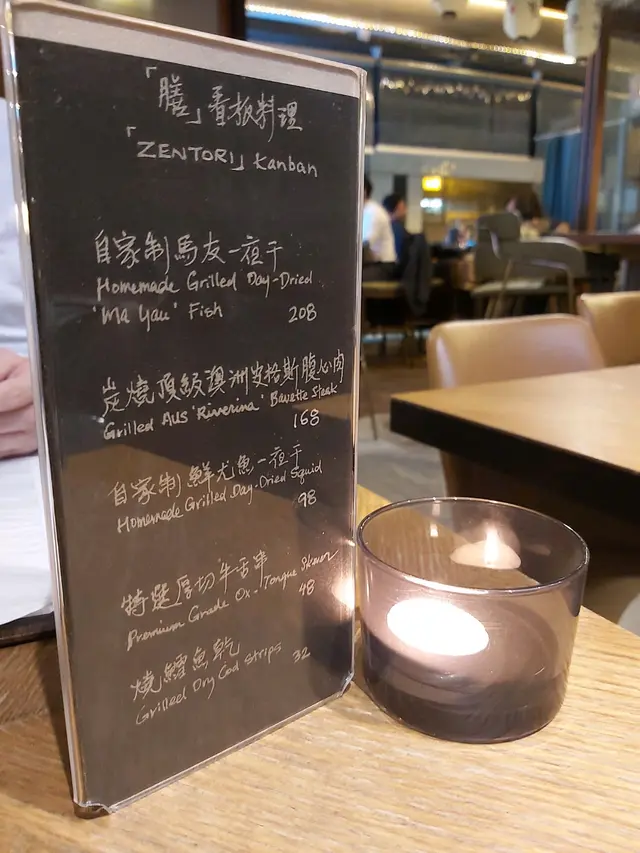 「膳」看板料理
「ZENTORI」kanban
自家制馬友一夜干
Homemade Grilled Day-Dried
'Ma Yau' Fish 208
炭燒頂級澳洲安格斯腹心肉
Grilled AUS 'Riverina' Bavette Steak
168
自家制鮮尤魚一夜干
Homemade Grilled Day-Dried Squid
98
特選厚切牛舌串
Premium Grade Ox-Tongue Skewer
48
燒鱈魚乾
Grilled Dry Cod Strips 32